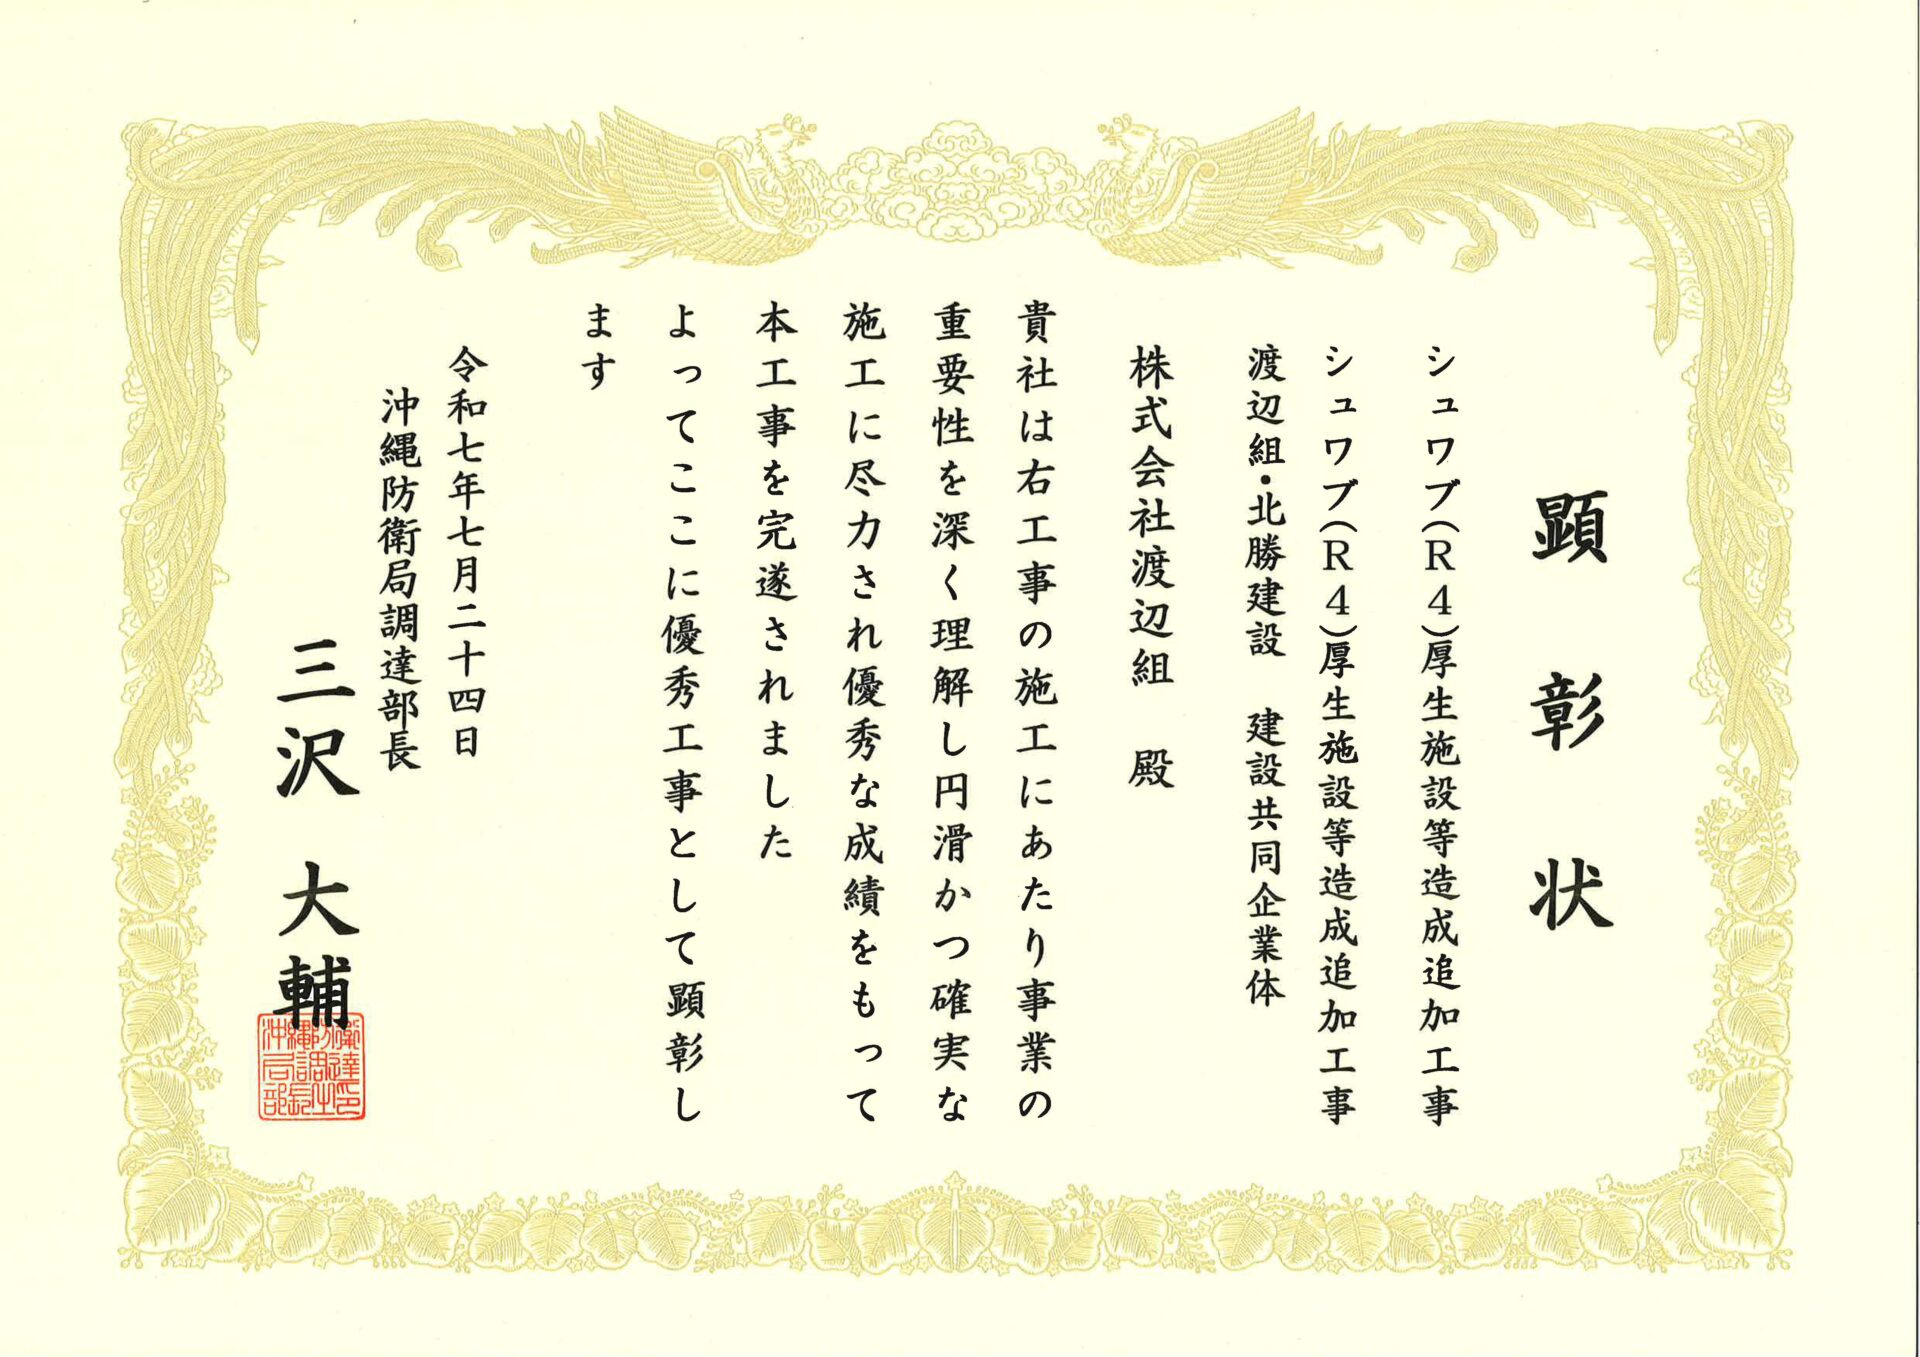 顕彰状
シュワブ（Ｒ４）厚生施設等造成追加工事
シュワブ（Ｒ４）厚生施設等造成追加工事
渡辺組・北勝建設　建設共同企業体
株式会社渡辺組　殿
貴社は右工事の施工にあたり事業の
重要性を深く理解し円滑かつ確実な
施工に尽力され優秀な成績をもって
本工事を完遂されました
よってここに優秀工事として顕彰し
ます
令和七年七月二十四日
沖縄防衛局調達部長
三沢　大輔